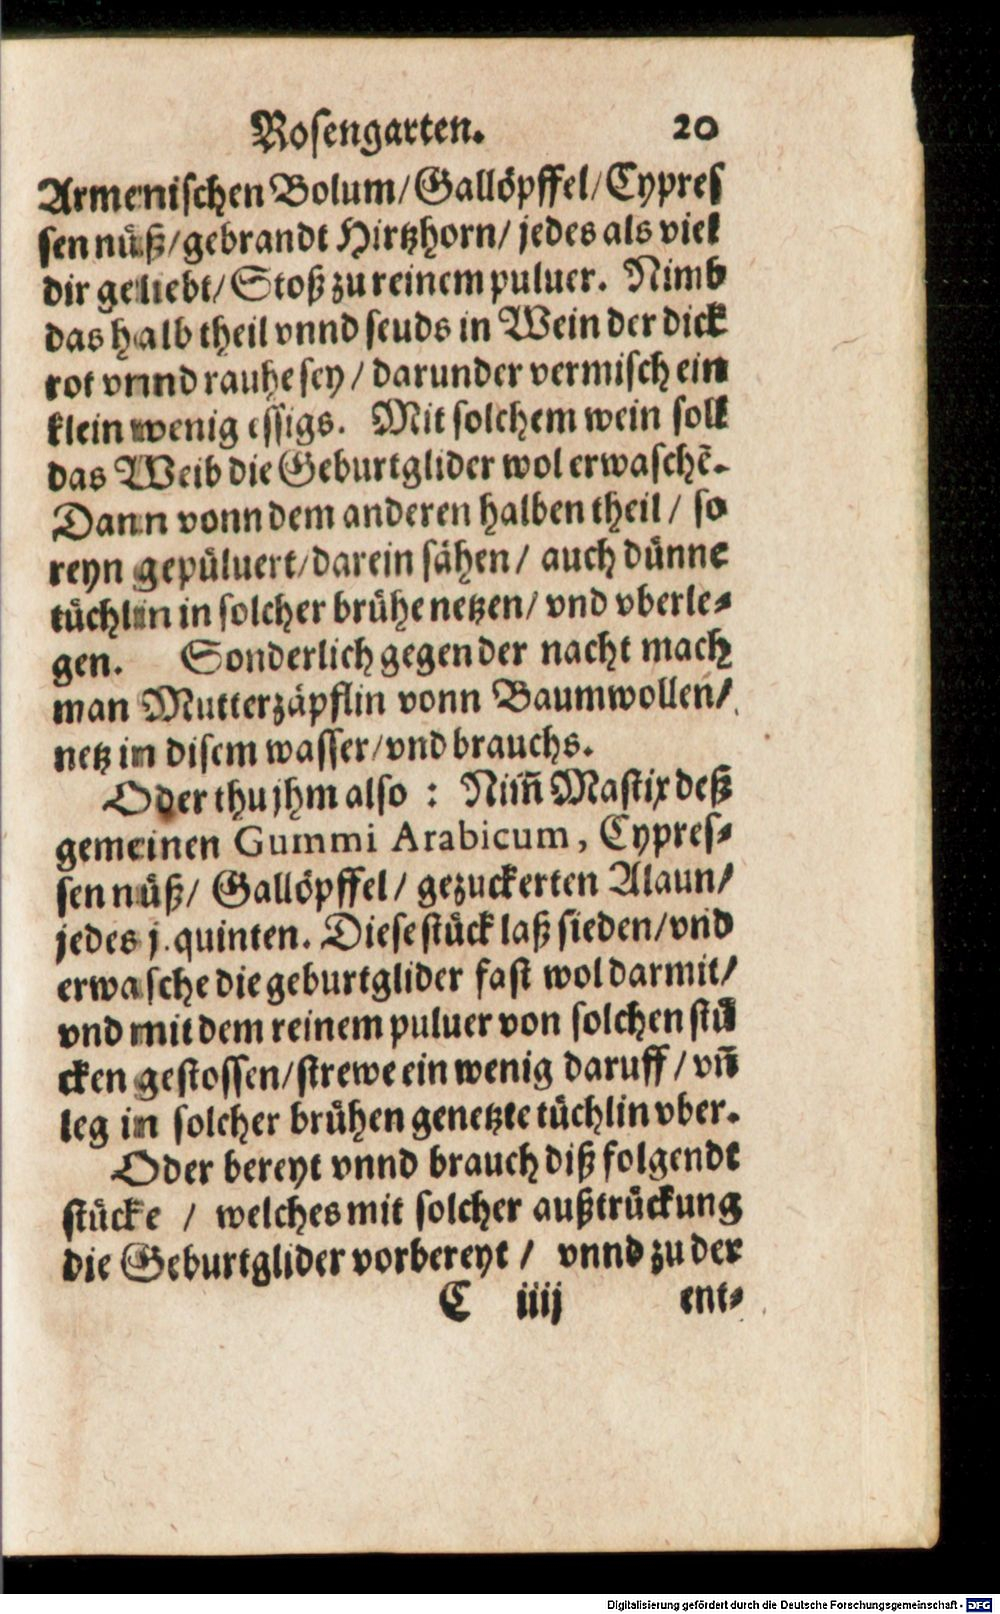 Rosengarten. 20
Armenischen Bolum/Gallöpffel/Cypres
sen nüß/gebrandt Hirtzhorn/ jedes als viel
dir geliebt/ Stoß zu reinem puluer. Nimb
das halb theil vnnd seuds in Wein der dick
rot vnnd rauhe sey / darunder vermisch ein
klein wenig essigs. Mit solchem wein soll
das Weib die Geburtglider wol erwaschẽ.
Dann vonn dem anderen halben theil / so
reyn gepüluert/darein sähen / auch dünne
tüchlin in solcher brühe netzen/ vnd vberle-
gen. Sonderlich gegen der nacht mach
man Mutterzäpflin vonn Baumwollen/
netz in disem wasser/vnd brauchs.
Oder thu jhm also : Nim̃ Mastix deß
gemeinen Gummi Arabicum, Cypres-
sen nüß/ Gallöpffel / gezuckerten Alaun/
jedes j. quinten. Diese stück laß sieden/vnd
erwasche die geburtglider fast wol darmit/
vnd mit dem reinem puluer von solchen stü
cken gestossen/strewe ein wenig daruff / vñ
leg in solcher brühen genetzte tüchlin vber.
Oder bereyt vnnd brauch diß folgendt
stücke / welches mit solcher außtrückung
die Geburtglider vorbereyt / vnnd zu der
C iiij ent-
Digitalisierung gefördert durch die Deutsche Forschungsgemeinschaft - DFG